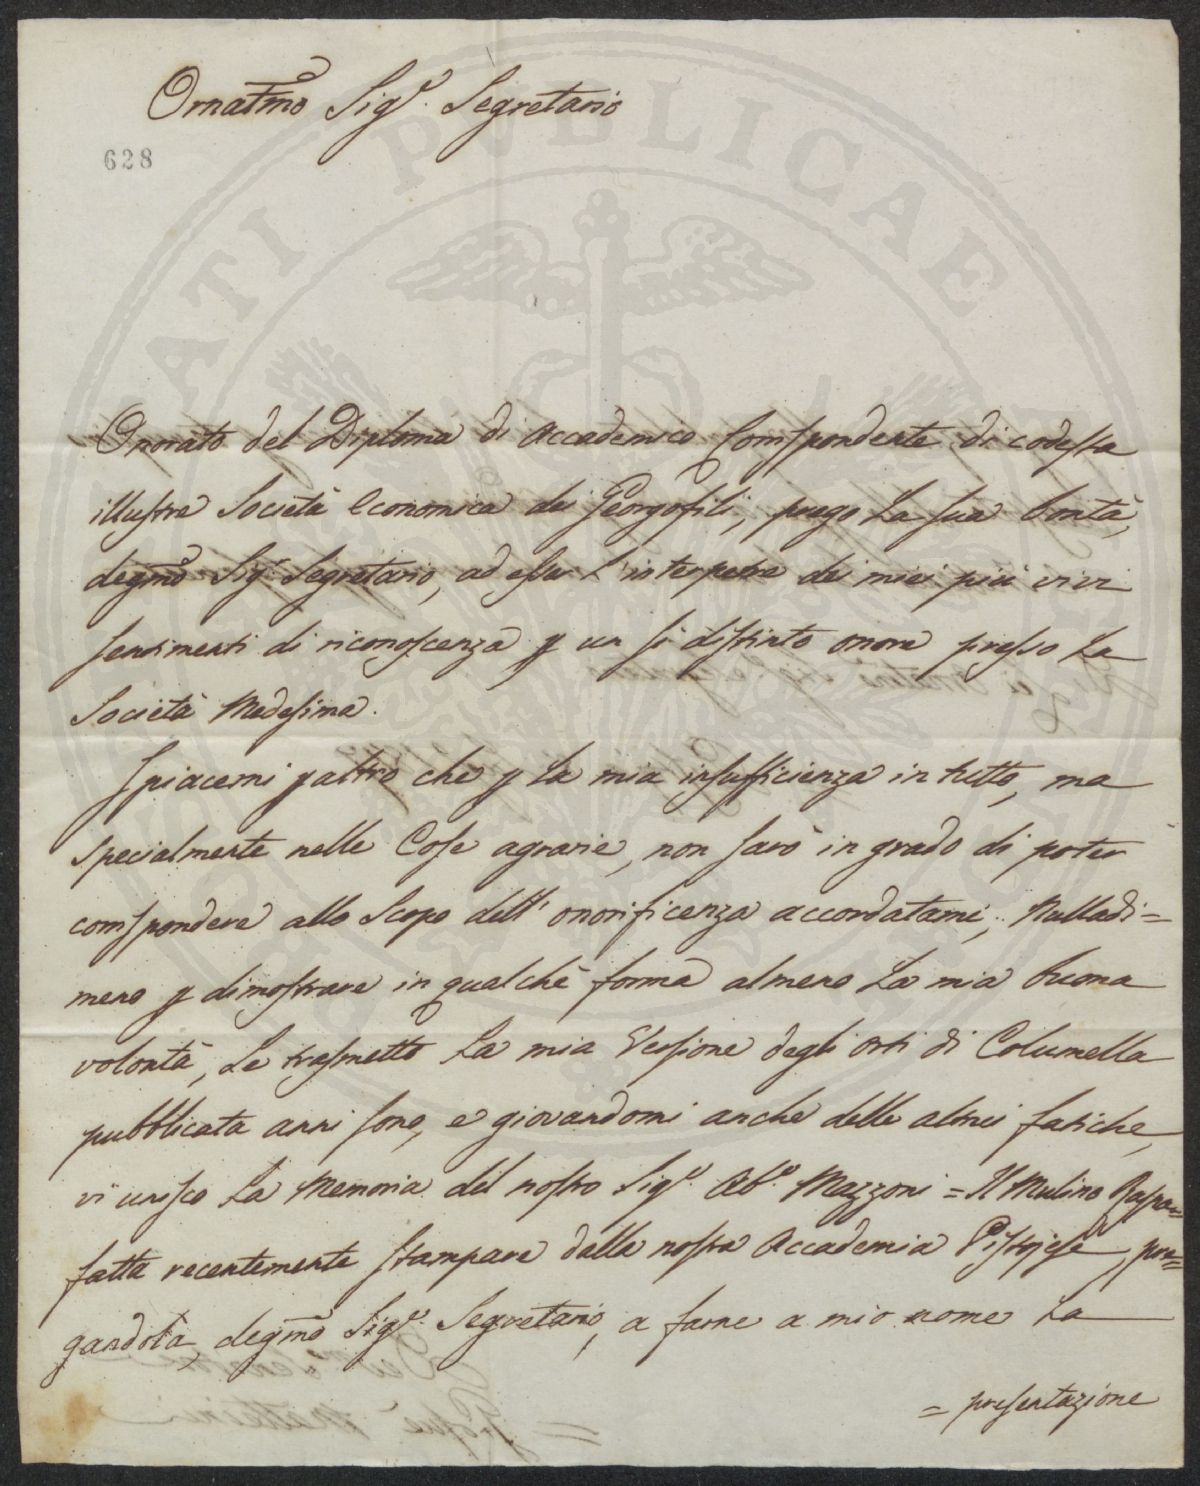 Ornatmo Sigr. Segretario
628
Onorato del Diploma di Accademico Corrispondente di codesta
illustre Società Economica dei Georgofili, prego La sua bontà,
degmo Sigr. Segretario, ad esser l'interpetre dei miei più vivi
sentimenti di riconoscenza p un sì distinto onore presso La
Società Medesima.
Spiacemi p altro che p La mia insufficienza in tutto, ma
specialmente nelle Cose agrarie, non sarò in grado di poter
corrispondere allo Scopo dell' onorificenza accordatami; Nulladi=
meno p dimostrare in qualchè forma almeno La mia buona
volontà, Le trasmetto La mia Versione degli orti di Columella
pubblicata anni sono, e giovandomi anche delle altrui fatiche,
vi unisco La Memoria del nostro Sigr. Abe. Mazzoni = Il Mulino Raspa=
fatta recentemente stampare dalla nostra Accademia Pistojese, pre=
gandola, degmo Sigr. Segretario, a farne a mio nome La
= presentazione